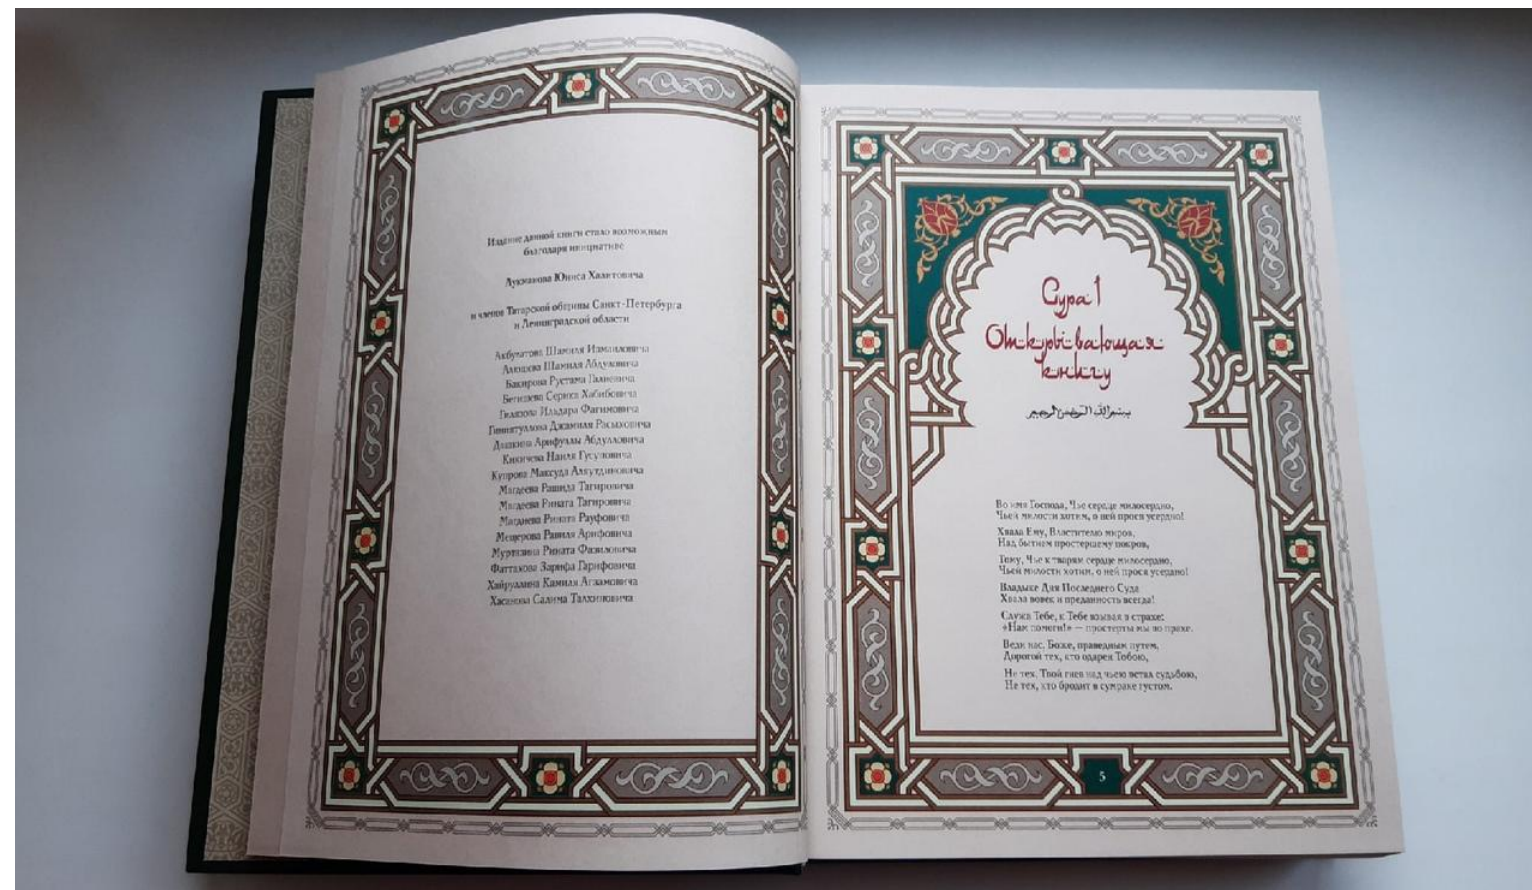 Издание данной книги стало возможным
благодаря инициативе
Лукманова Юниса Халитовича
и членов Татарской общины Санкт-Петербурга
и Ленинградской области
Акбулатова Шамиля Измаиловича
Алюшева Шамиля Абдуловича
Бакирова Рустама Галиевича
Бегишева Серика Хабибовича
Гилязова Ильдара Фагимовича
Гиниятуллова Джамиля Расыховича
Дашкина Арифуллы Абдулловича
Кикичева Наиля Гусуповича
Купрова Максуда Аляутдиновича
Магдеева Рашида Тагировича
Магдеева Рината Тагировича
Магдиева Рината Рауфовича
Мещерова Равиля Арифовича
Муртазина Рината Фазиловича
Фаттахова Зарифа Гарифовича
Хайруллина Камиля Агзамовича
Хасанова Салима Талхиновича
Сура 1
Открывающая
книгу
بسم الله الرحمن الرحيم
Во имя Господа, Чье сердце милосердно,
Чьей милости хотим, о ней прося усердно!
Хвала Ему, Властителю миров,
Над бытием простершему покров,
Тому, Чье к тварям сердце милосердно,
Чьей милости хотим, о ней прося усердно!
Владыке Дня Последнего Суда
Хвала вовек и преданность всегда!
Служа Тебе, к Тебе взывая в страхе:
«Нам помоги!» — простерты мы во прахе.
Веди нас, Боже, праведным путем,
Дорогой тех, кто одарен Тобою,
Не тех, Твой гнев над чьею встал судьбою,
Не тех, кто бродит в сумраке густом.
5